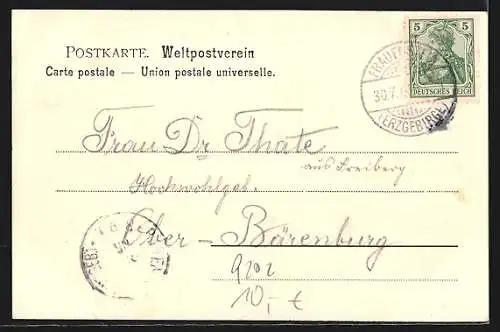 POSTKARTE. Weltpostverein
Carte postale — Union postale universelle.
5 5
DEUTSCHES REICH
30.7.
(ERZGEBIRGE)
Frau Dr Thate
aus Freiberg
Hochwohlgeb.
Ober-Bärenburg
9202
10,-€